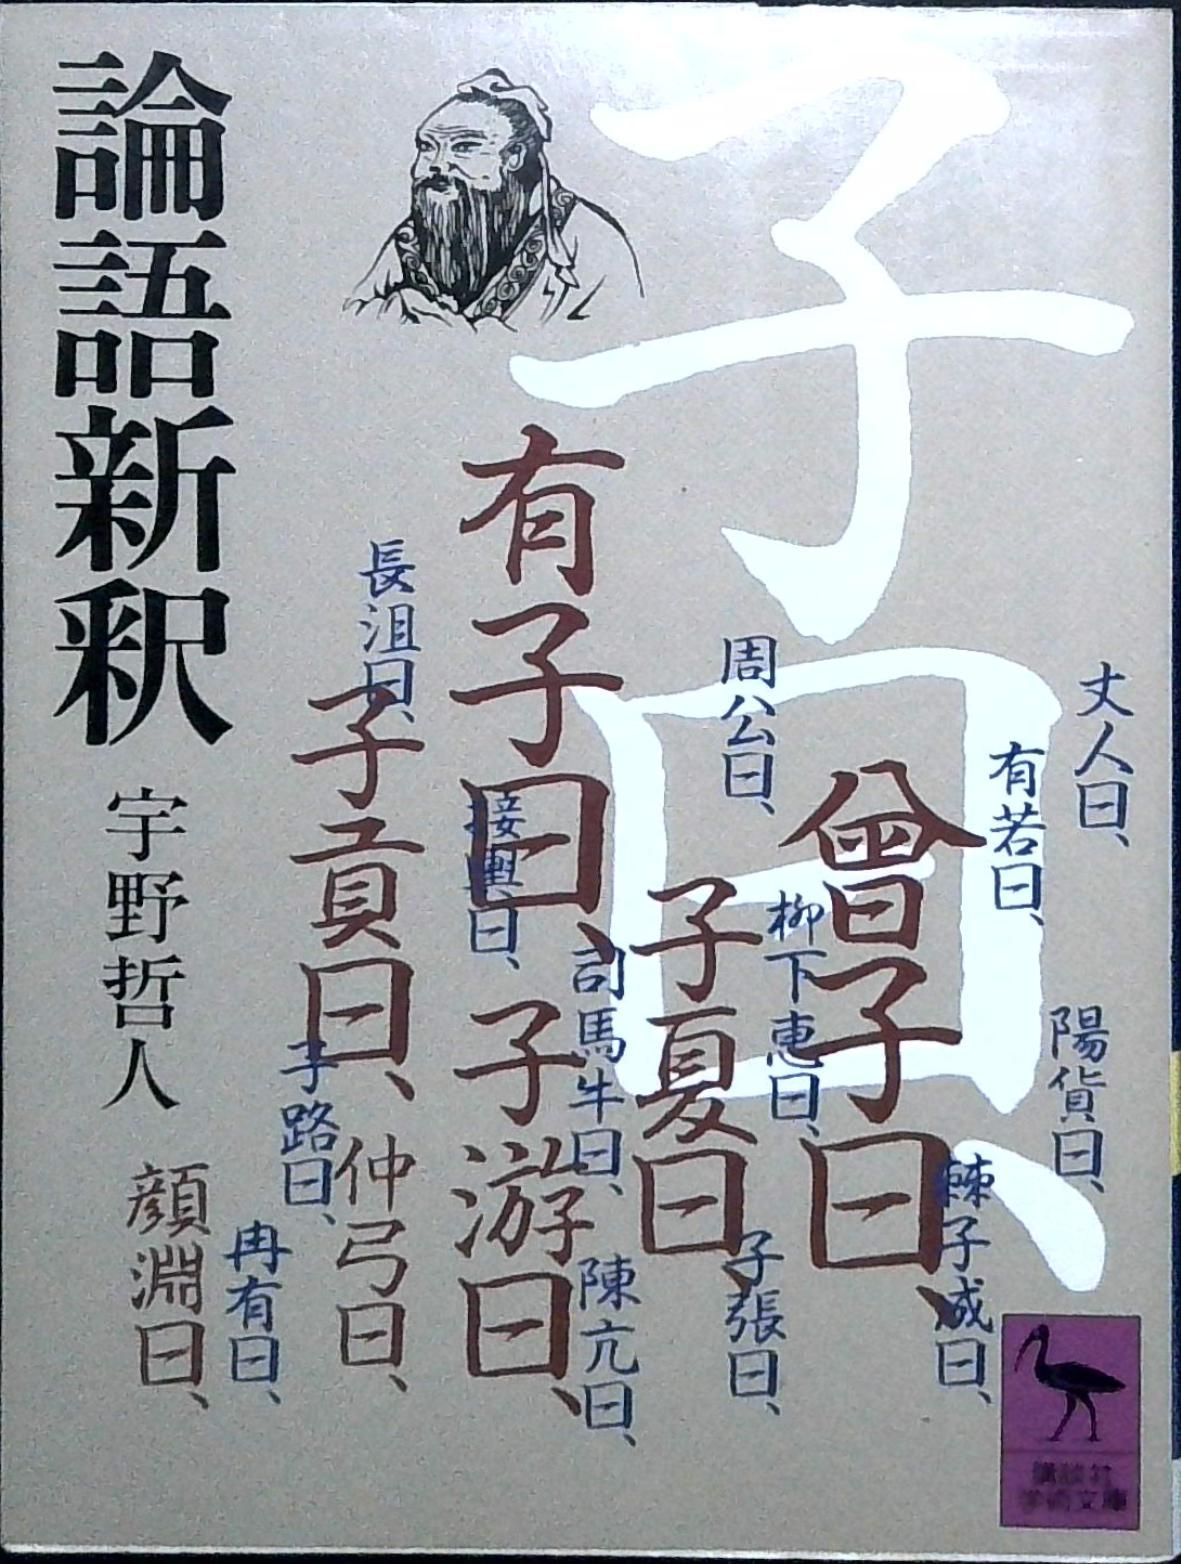 論語新釈
宇野哲人
子曰、
有子曰、
曾子曰、
子貢曰、
子夏曰、
子游曰、
仲弓曰、
顔淵曰、
長沮曰、
周公曰、
丈人曰、
有若曰、
接輿曰、
柳下恵曰、
司馬牛曰、
陽貨曰、
子路曰、
棘子成曰、
冉有曰、
陳亢曰、
子張曰、
講談社
学術文庫